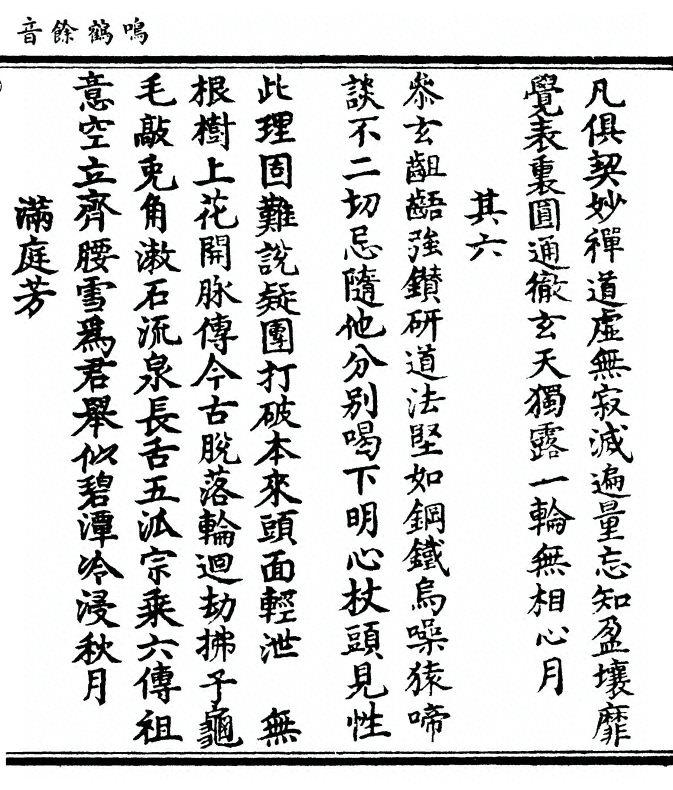 鳴鶴餘音
凡俱契妙禪道虛無寂滅遍量忘知盈壤靡
覺表裏圓通徹玄天獨露一輪無相心月
其六
叅玄齟齬強鑽研道法堅如鋼鐵烏噪猿啼
談不二切忌隨他分别喝下明心杖頭見性
此理固難說疑團打破本來頭面輕泄　無
根樹上花開脉傳今古脫落輪迴劫拂子龜
毛敲兎角漱石流泉長舌五泒宗乘六傳祖
意空立齊腰雪爲君舉似碧潭冷浸秋月
滿庭芳